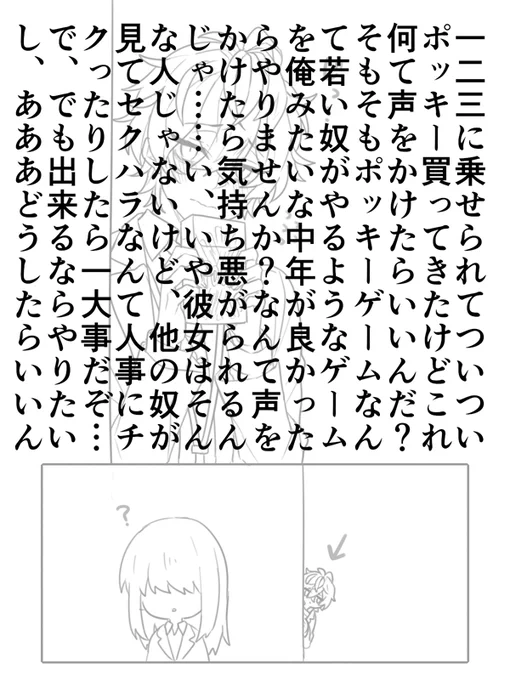 一二三に乗せられてついつい
ポッキー買ってきたけどこれ
何て声をかけたらいいんだ?
そもそもポッキーゲームなん
て若い奴がやるようなゲーム
を俺みたいな中年が良かった
らやりませんか?なんて声を
かけたら気持ち悪がられるん
じゃ……い、いや彼女はそん
な人じゃないけど、他の奴が
見てセクハラなんて人事にチ
クったりしたら一大事だぞ…
で、でも出来るならやりたい
し、あああどうしたらいいん
?